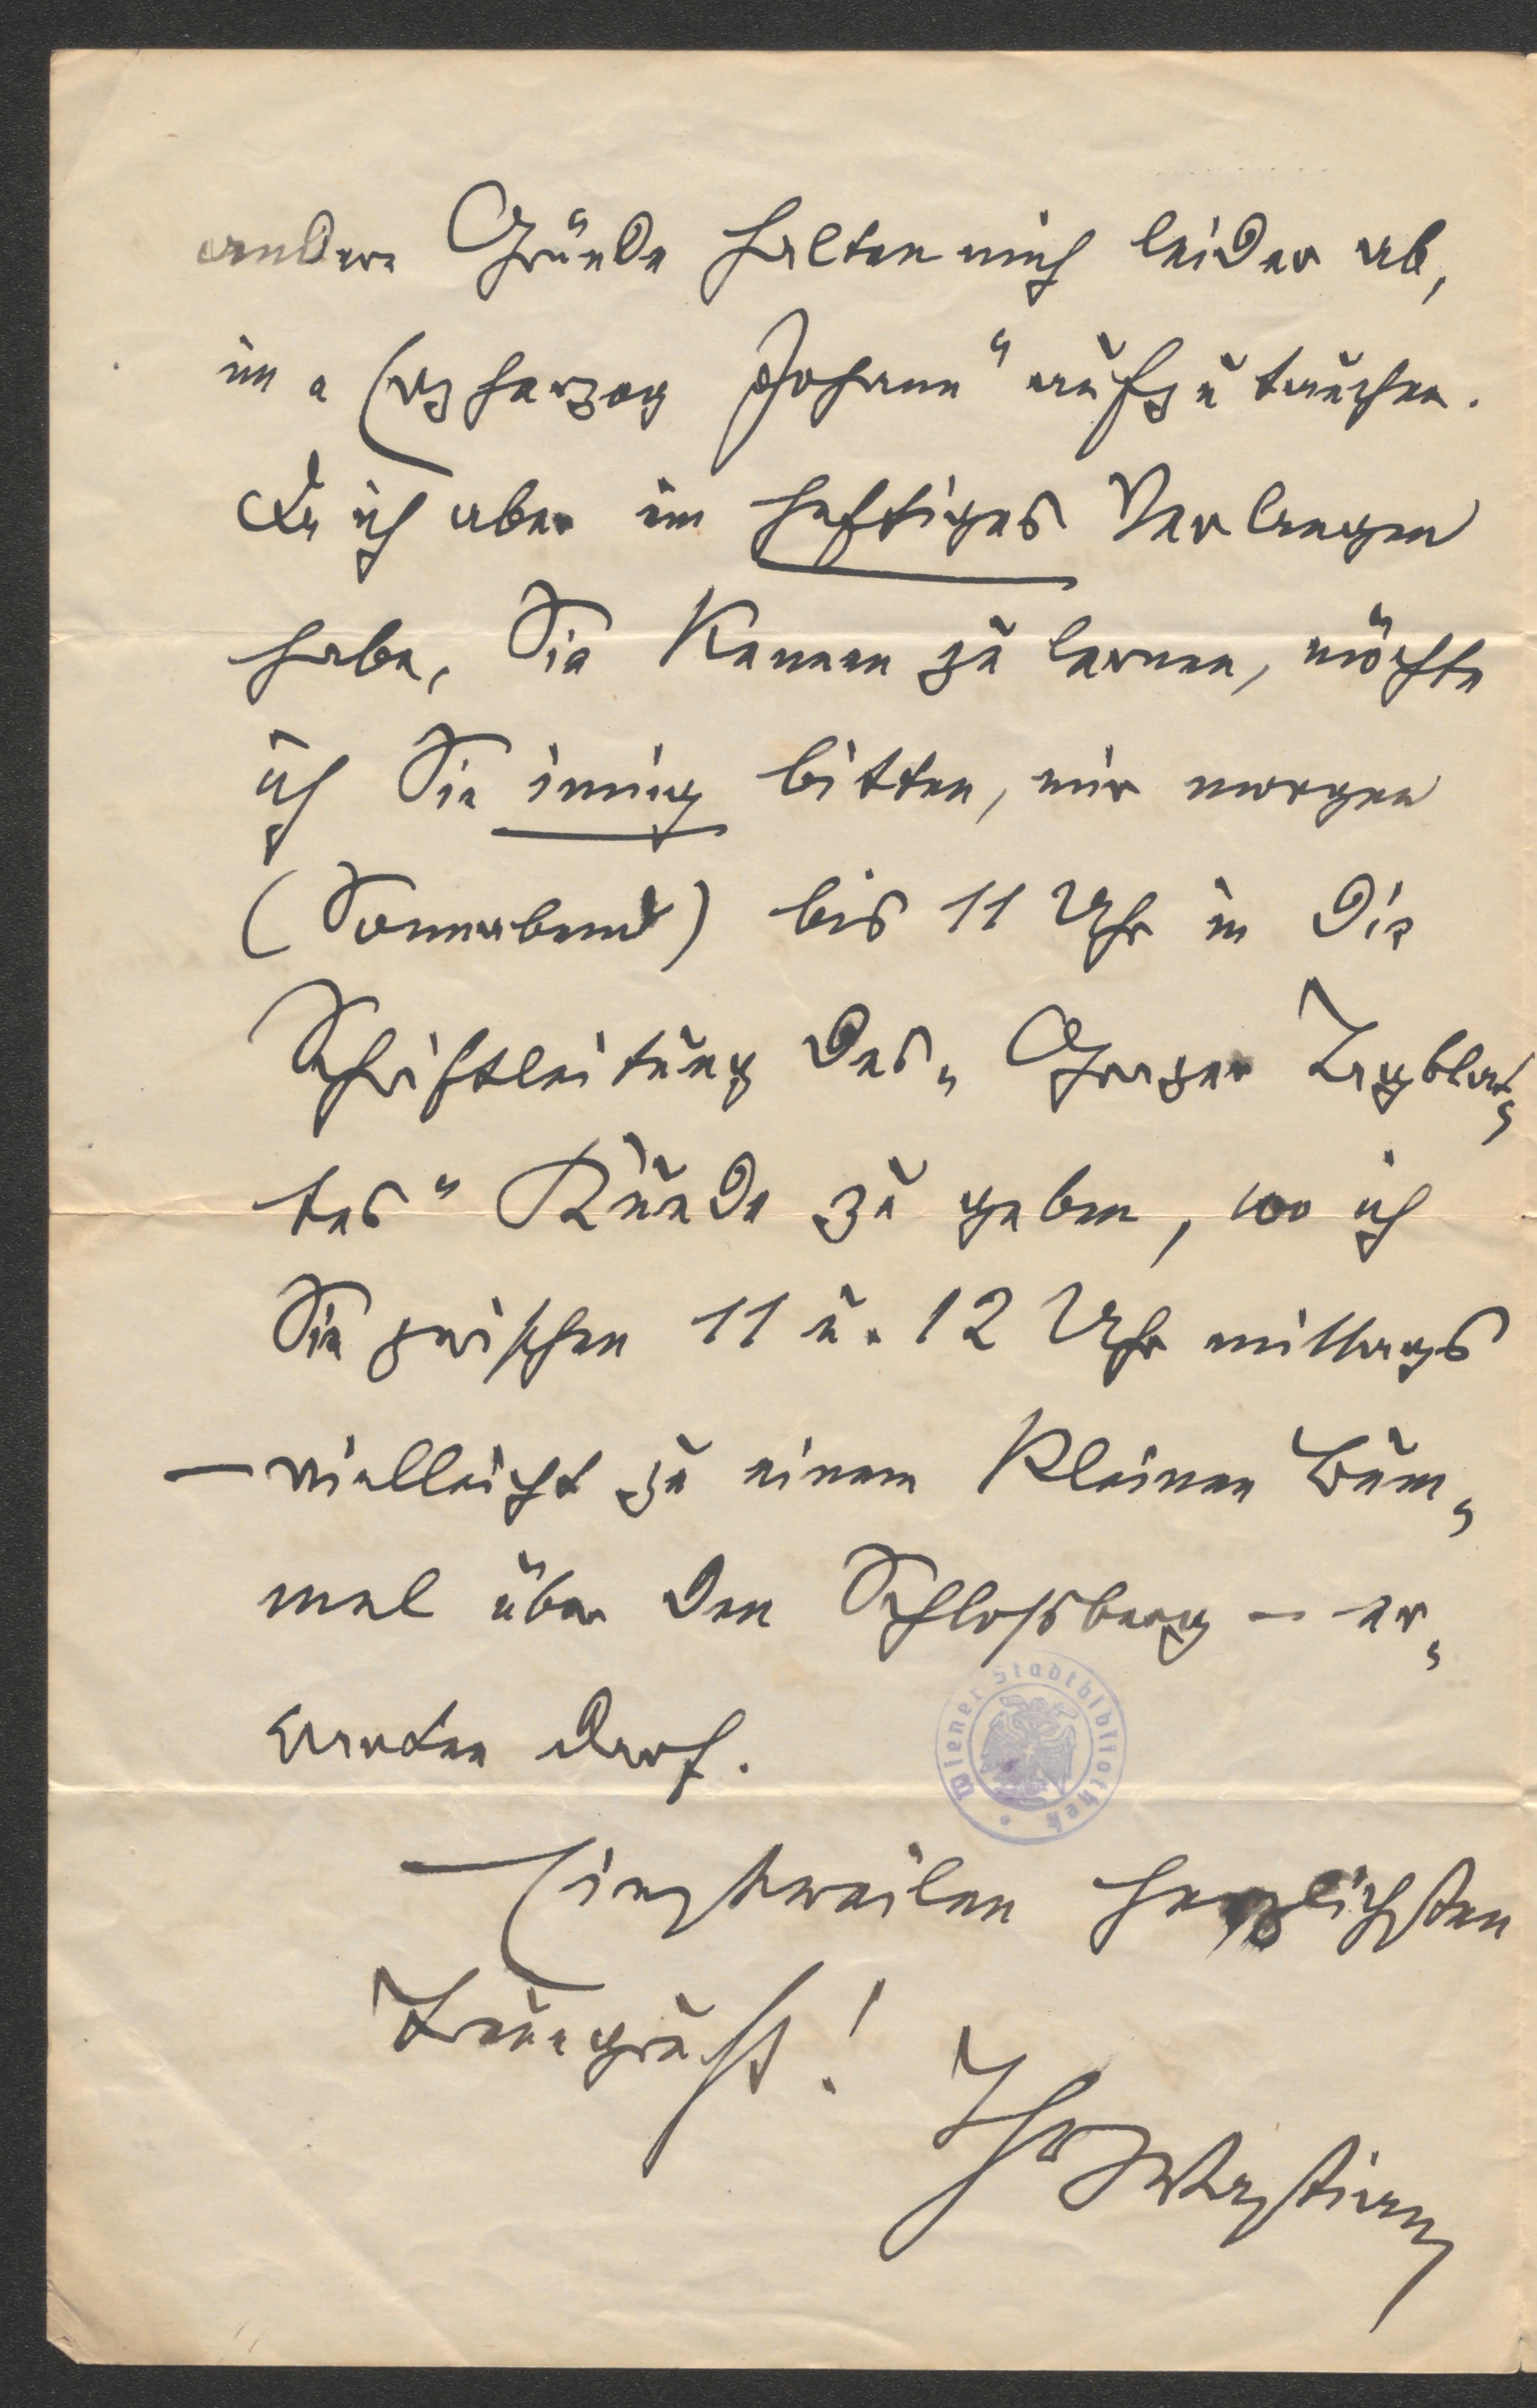 andere Gründe halten mich leider ab,
im „Erzherzog Johann“ aufzutauchen.
Da ich aber ein heftiges Verlangen
habe, Sie kennen zu lernen, möchte
ich Sie innig bitten, mir morgen
(Sonnabend) bis 11 Uhr in die
Schriftleitung des „Grazer Tagblat-
tes“ Kunde zu geben, wo ich
Sie zwischen 11 u. 12 Uhr mittags
— vielleicht zu einem kleinen Bum-
mel über den Schloßberg — er-
warten darf.
Wiener Stadtbibliothek
Einstweilen herzlichsten
Treugruß!
Ihr